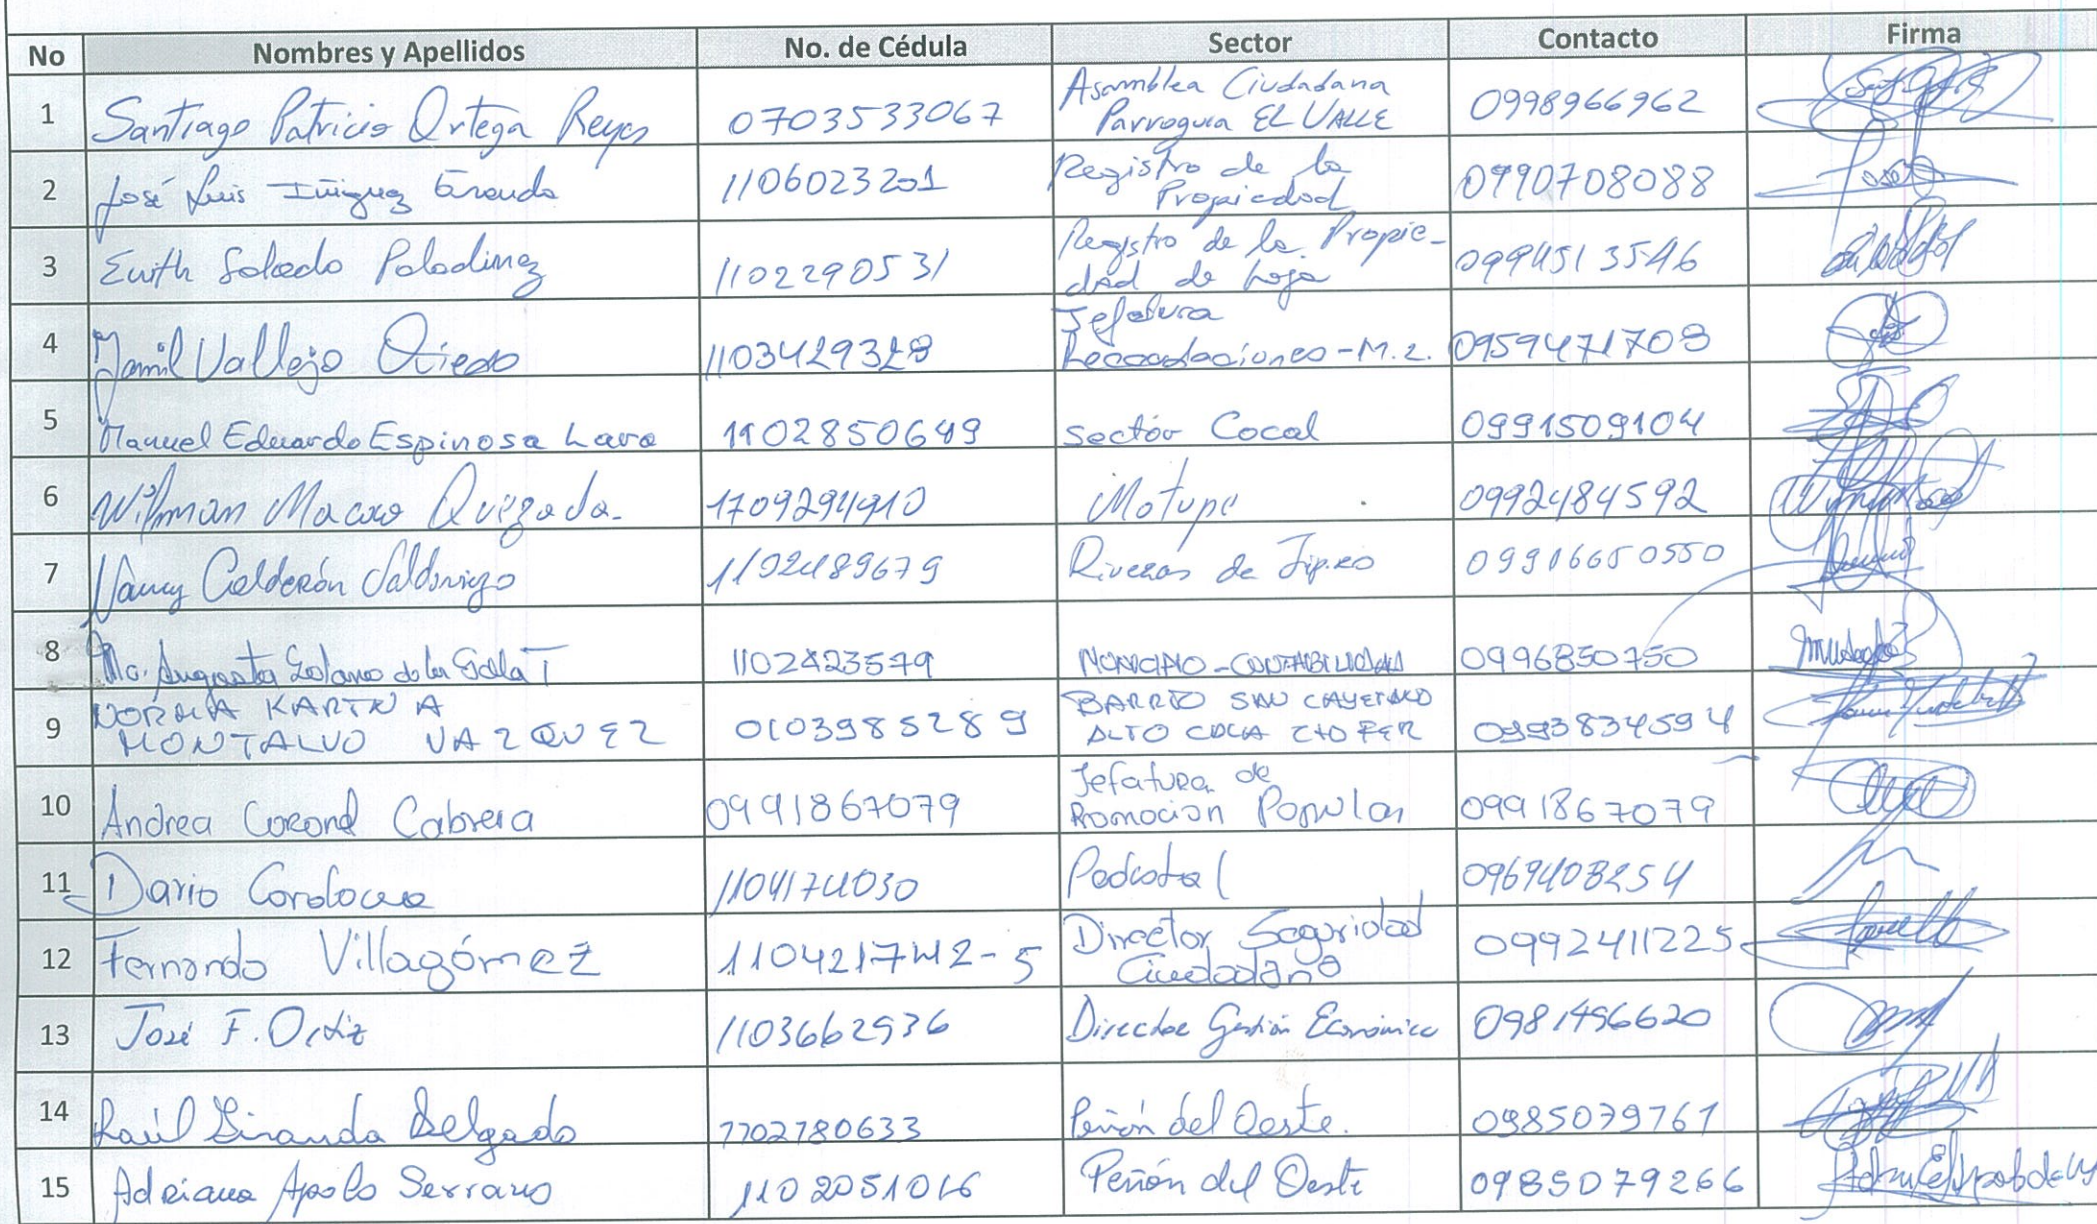 No Nombres y Apellidos No. de Cédula Sector Contacto Firma
1 Santiago Patricio Ortega Reyes 0703533067 Asamblea Ciudadana Parroquia EL VALLE 0998966962
2 José Luis Iñiguez Granda 1106023201 Registro de la Propiedad 0990708088
3 Enith Salcedo Paladinez 1102290531 Registro de la Propie-dad de Loja 0994513546
4 Jamil Vallejo 1103429328 Jefatura Recaudaciones-M.L. 0959471708
5 Manuel Eduardo Espinosa Lara 1102850649 sector Cocal 0991509104
6 Wilman Macao Quezada 1709294910 Motupe 0992484592
7 Nancy Calderón Saldarriaga 1102489679 Riveras de Jipiro
8 Ma. Augusta Solano de la Sala T 1102423579 MUNICIPIO-CONTABILIDAD 0996850750
9 NORMA KARINA MONTALVO VAZQUEZ 0103985289 BARRIO SAN CAYETANO ALTO 0993834594
10 Andrea Coronel Cabrera 0991867079 Jefatura de Promocion Popular 0991867079
11 Dario Cordova 1104174030 Pedestal 0969408254
12 Fernando Villagómez Director Seguridad Ciudadana 0992411225
13 José F. Ortiz 1103662936 Director Gestión Económica 0981496620
14 Raúl Miranda Delgado 1102780633 Peñón del Oeste. 0985079761
15 Adriana Apolo Serrano 1102051016 Peñón del Oeste 0985079266